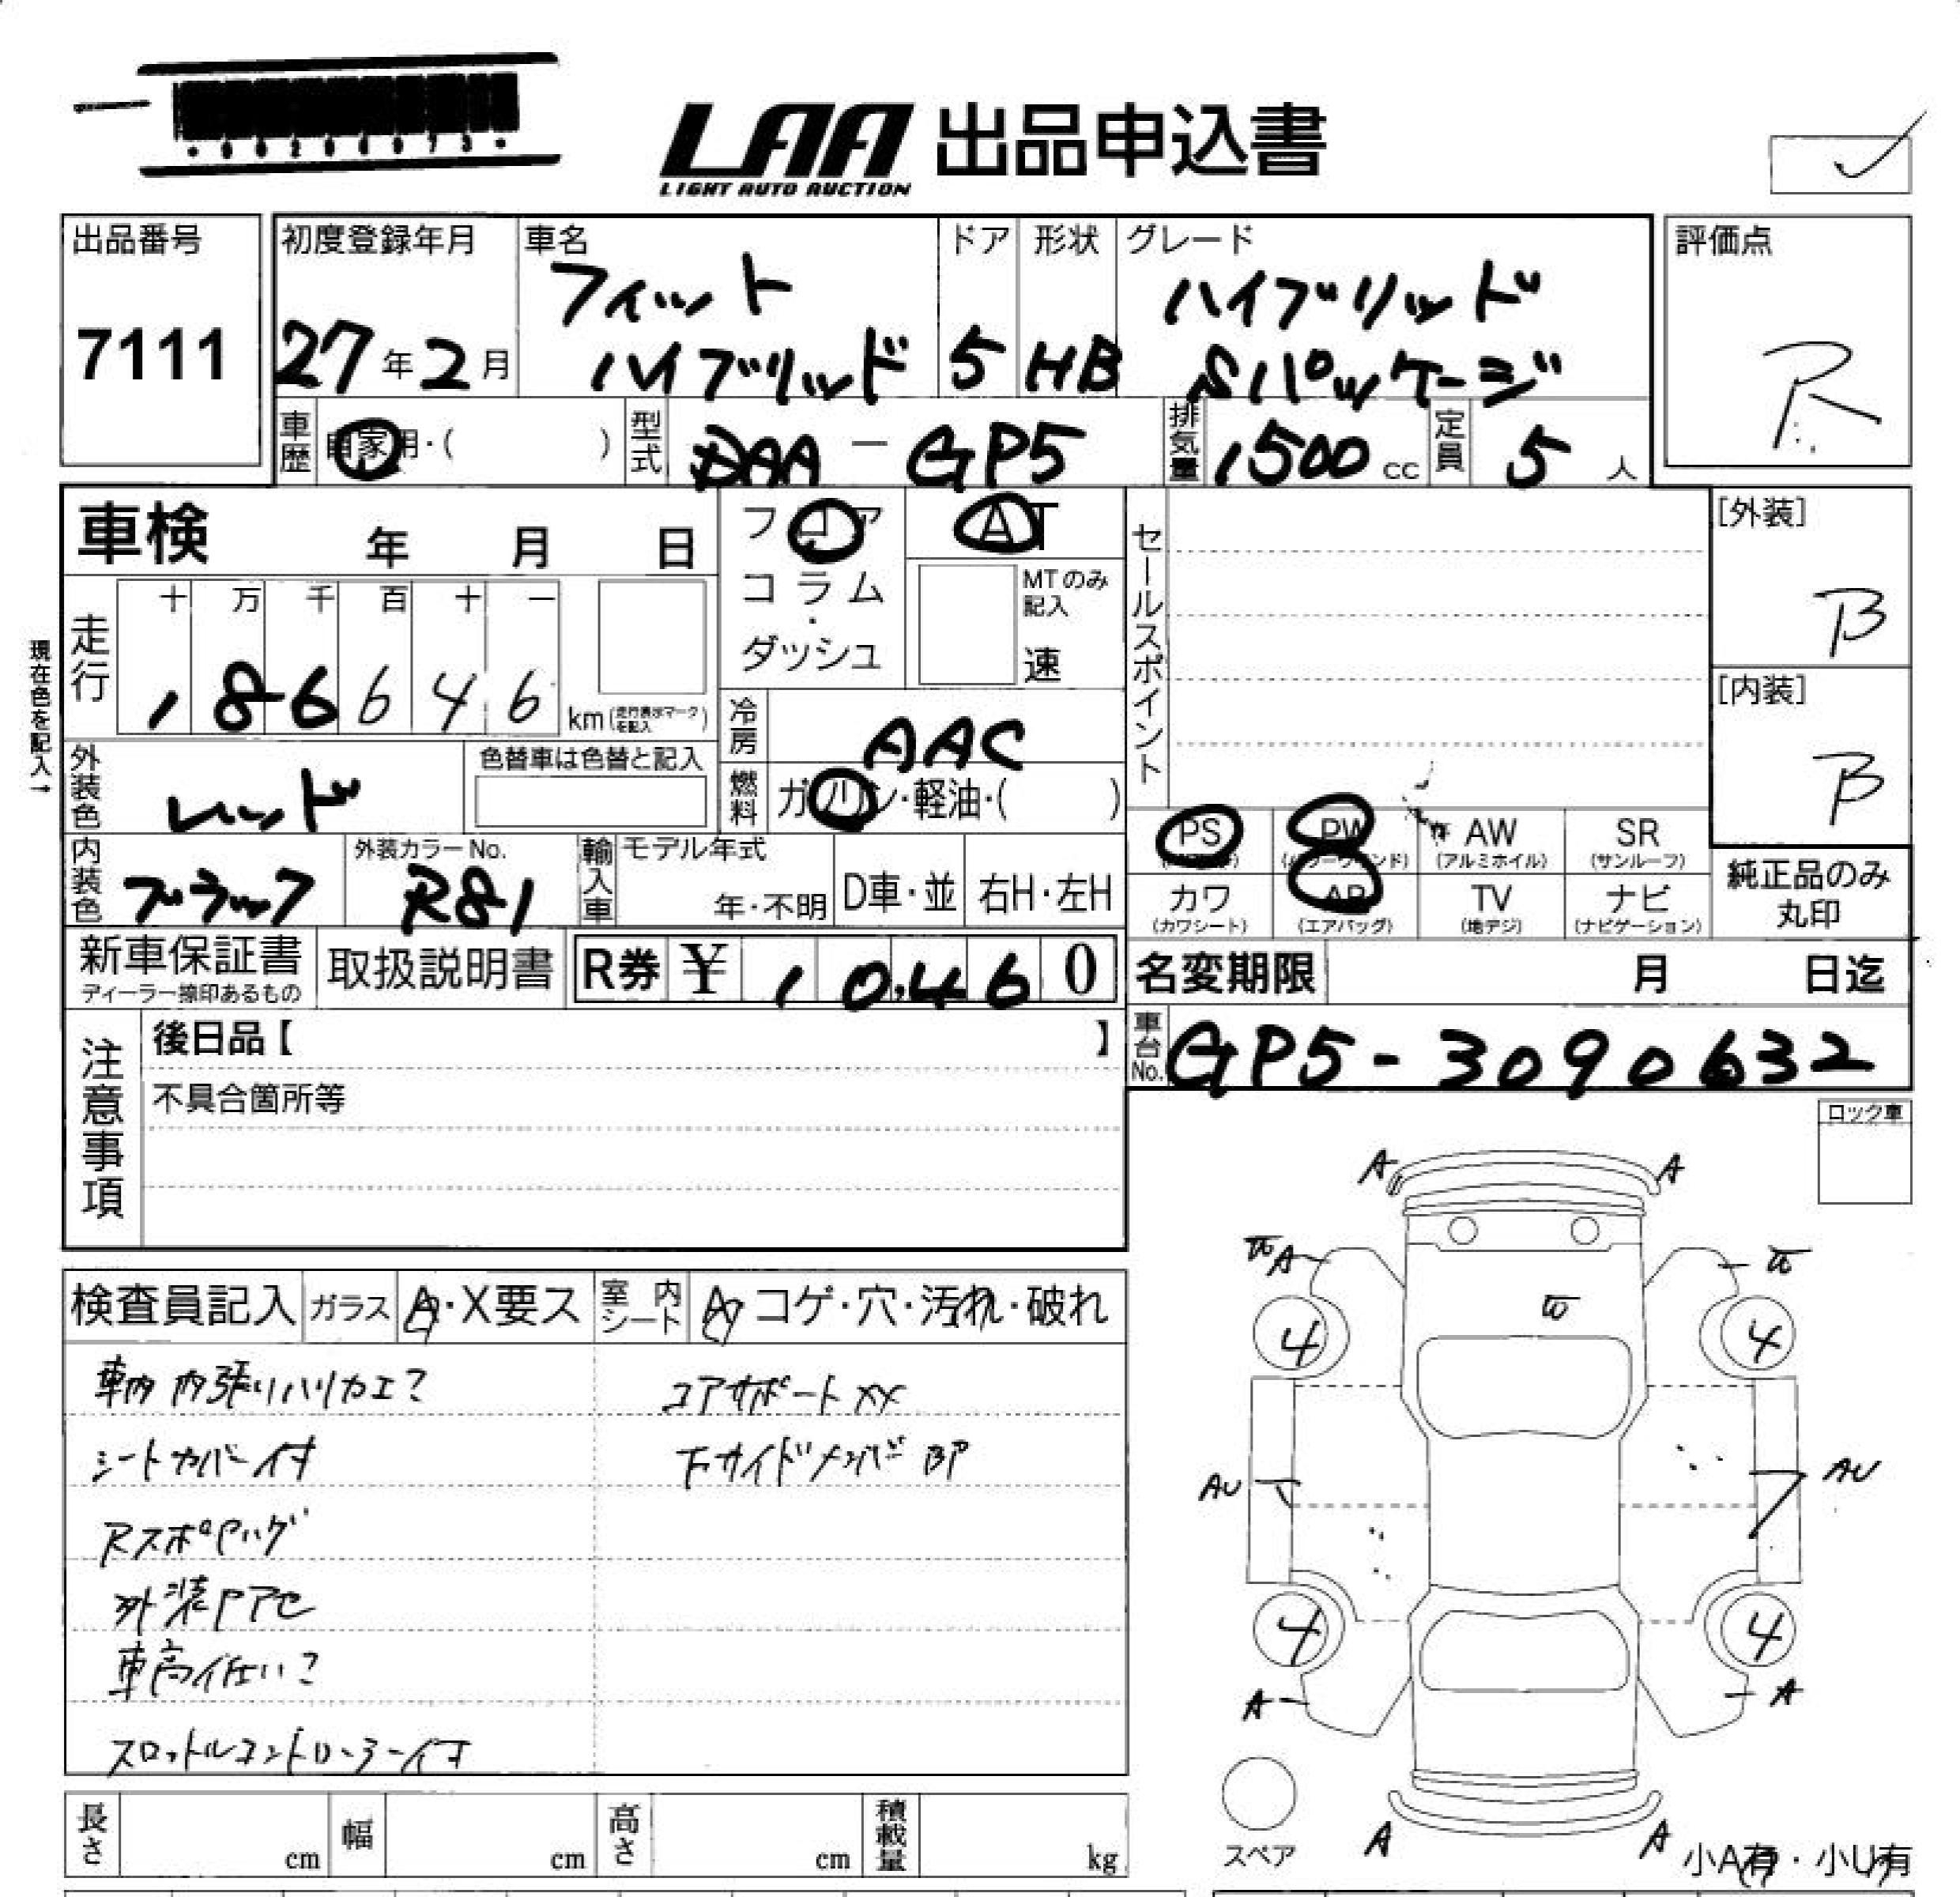 LAA 出品申込書
LIGHT AUTO AUCTION
出品番号
7111
初度登録年月
27年2月
車名
フィット
ハイブリッド
ドア
5
形状
HB
グレード
ハイブリッド
Sパッケージ
評価点
R
車歴 自家用・( )
型式 DAA-GP5
排気量 1500 cc
定員 5 人
車検 年 月 日
フロア
コラム・ダッシュ
AT
MTのみ記入
速
セールスポイント
[外装]
B
[内装]
B
現在色を記入→
走行
十 万 千 百 十 一
1 8 6 6 4 6 km(走行表示マークを記入)
冷房 AAC
燃料 ガソリン・軽油・( )
外装色 レッド
色替車は色替と記入
内装色 ブラック
外装カラーNo.
R81
輸入車 モデル年式
年・不明
D車・並
右H・左H
PS
PW
AW
(アルミホイル)
SR
(サンルーフ)
カワ
(カワシート)
AB
(エアバッグ)
TV
(地デジ)
ナビ
(ナビゲーション)
純正品のみ
丸印
新車保証書
ディーラー捺印あるもの
取扱説明書
R券 ¥ 10,460
名変期限 月 日迄
車台No. GP5-3090632
注意事項
後日品【 】
不具合箇所等
ロック車
検査員記入 ガラス A・X要ス 室内シート コゲ・穴・汚れ・破れ
車内内張りハリカエ?
コアサポートXX
シートカバー付
下サイドメンバーBP
Rスポイラーハゲ
外装アセ
車高低い?
スロットルコントローラー付
A A
A
4 4
AU AU
4 4
A A
スペア
A A
小A有・小U有
長さ cm
幅 cm
高さ cm
積載量 kg